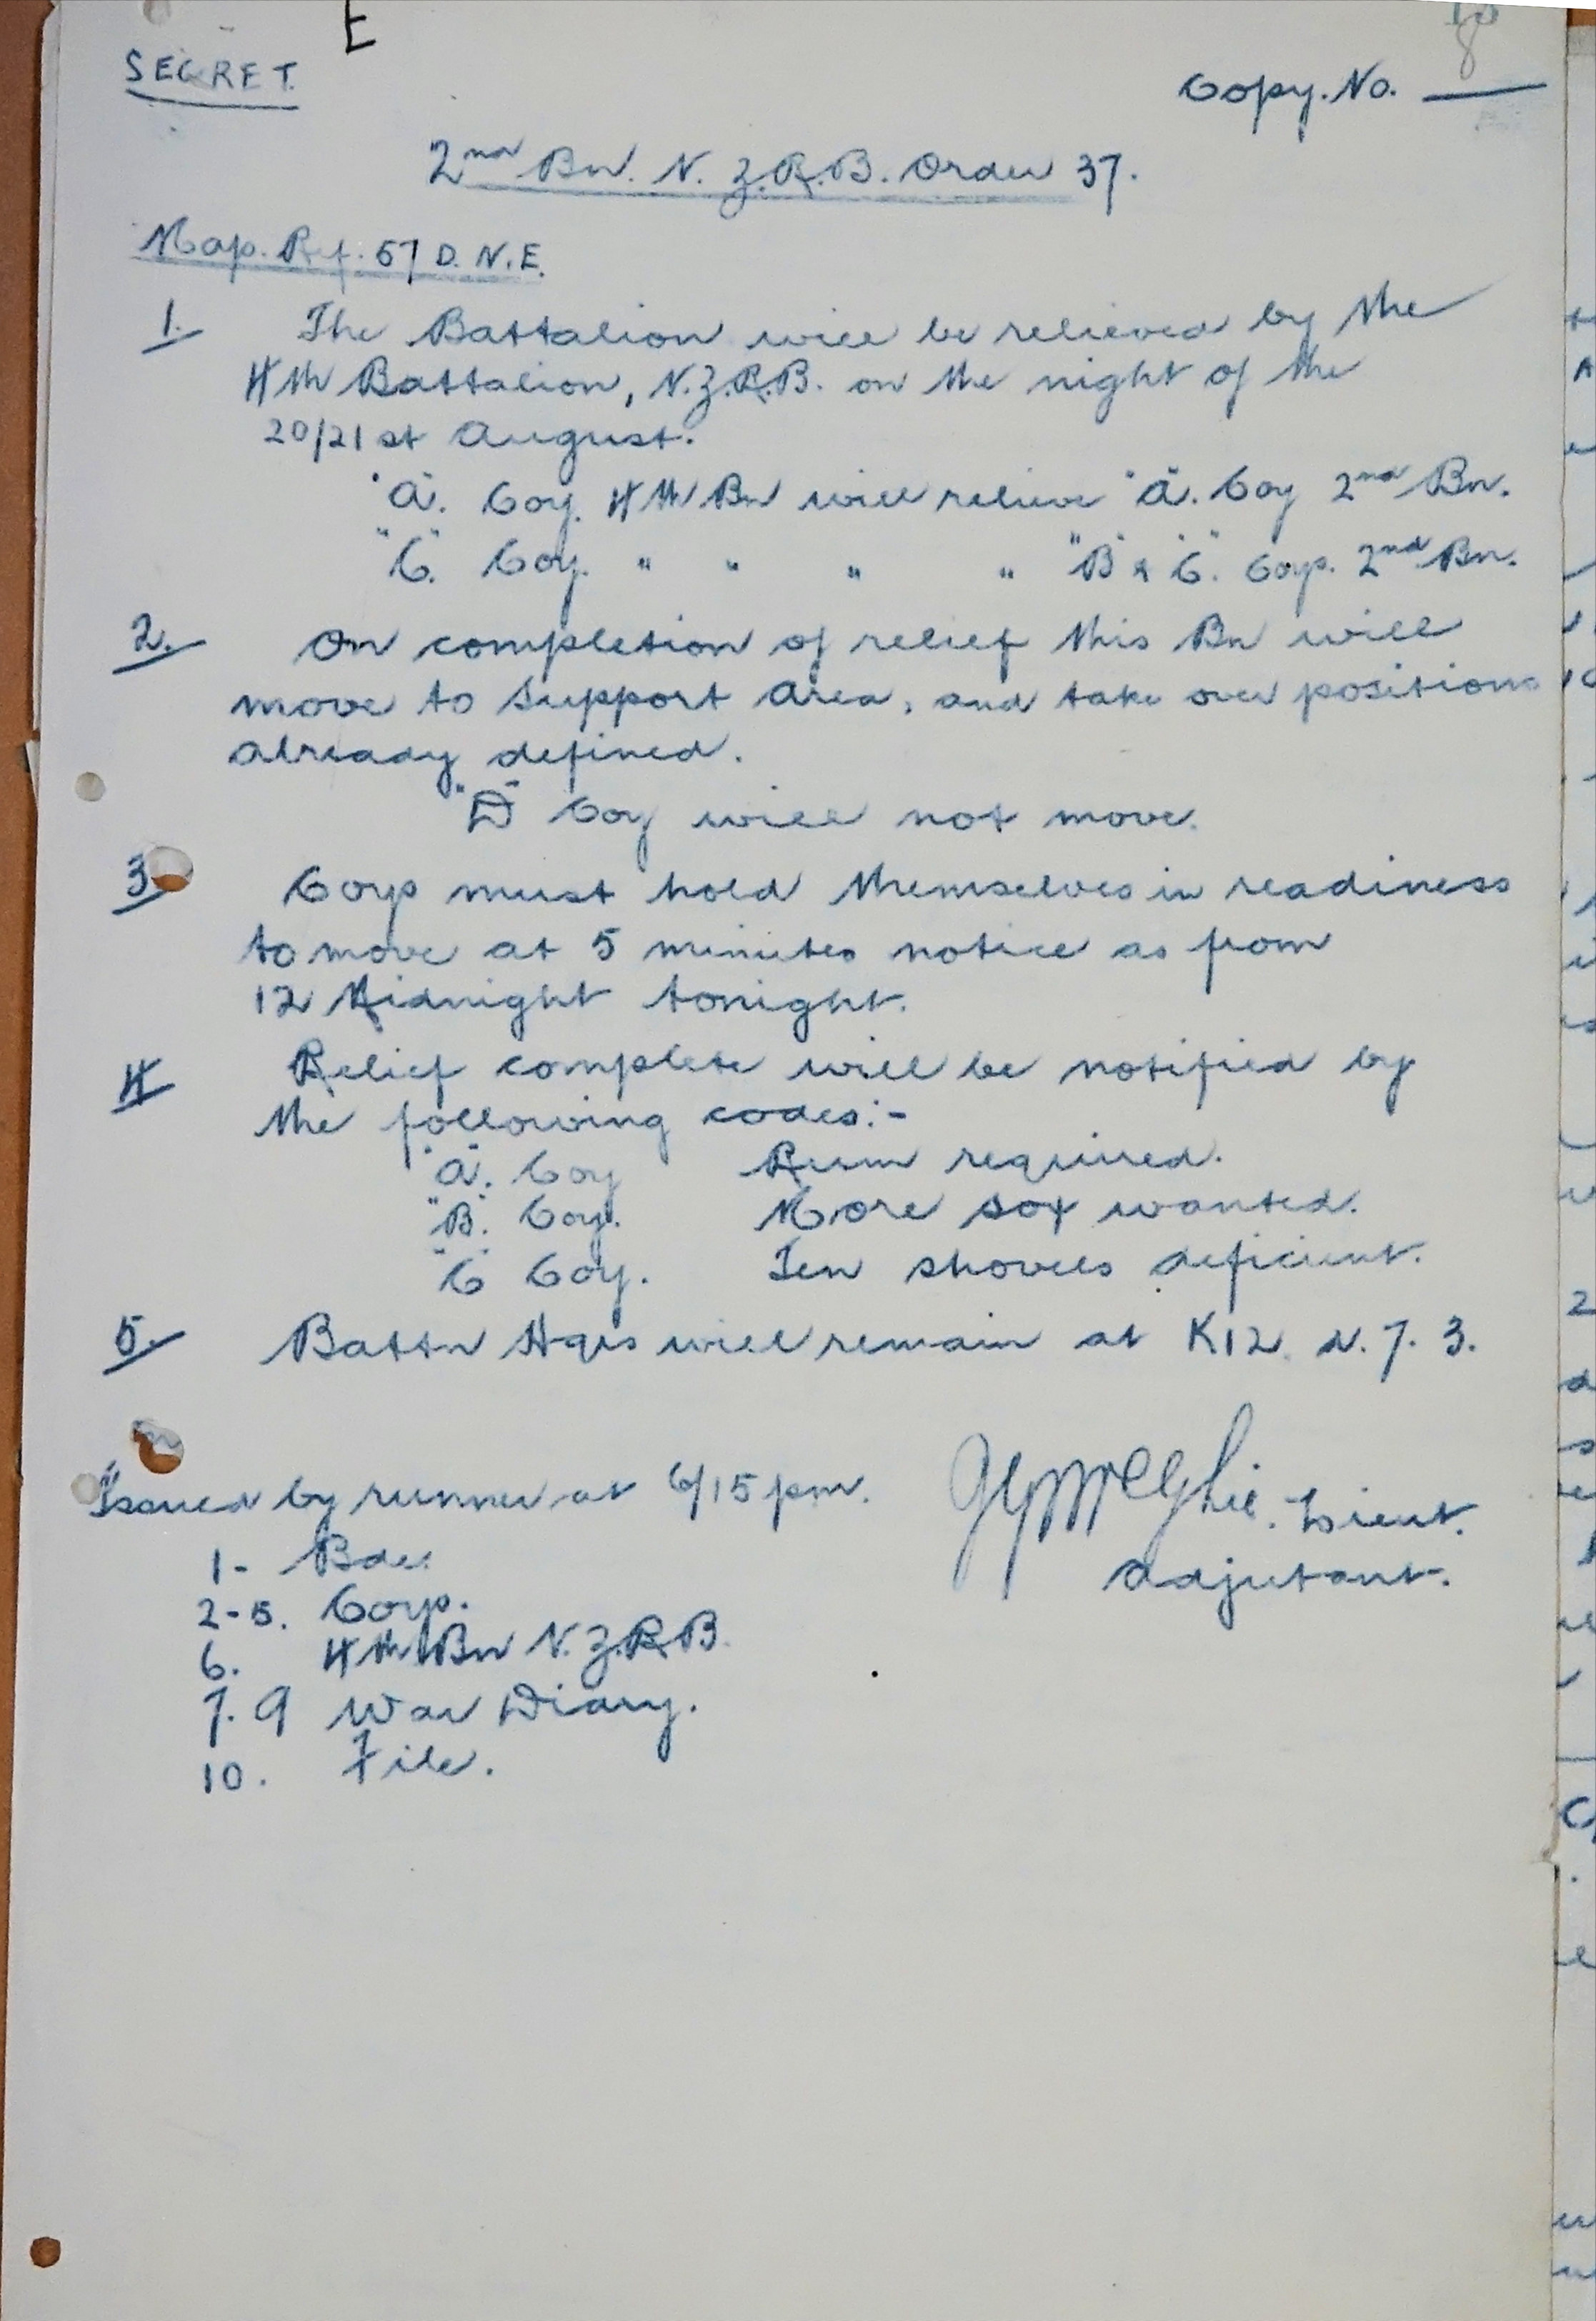 E
SECRET.
Copy. No. 8
2nd Bn. N.Z.R.B. Order 37.
Map. Ref. 57 D. N.E.
1. The Battalion will be relieved by the
4th Battalion, N.Z.R.B. on the night of the
20/21st August.
"A". Coy. 4th Bn will relieve "A". Coy 2nd Bn.
"C". Coy. " " " " "B" & "C". Coys. 2nd Bn.
2. On completion of relief this Bn will
move to Support Area, and take over positions
already defined.
"D" Coy will not move.
3. Coys must hold themselves in readiness
to move at 5 minutes notice as from
12 Midnight tonight.
4 Relief complete will be notified by
the following codes:-
"A". Coy Rum required.
"B". Coy. More sox wanted.
"C" Coy. Ten shovels deficient.
5. Battn Hqrs will remain at K12. d. 7. 3.
Issued by runner at 6/15 pm.
Lieut.
Adjutant.
1- Bde.
2-5. Coys.
6. 4th Bn N.Z.R.B.
7. 9 War Diary.
10. File.